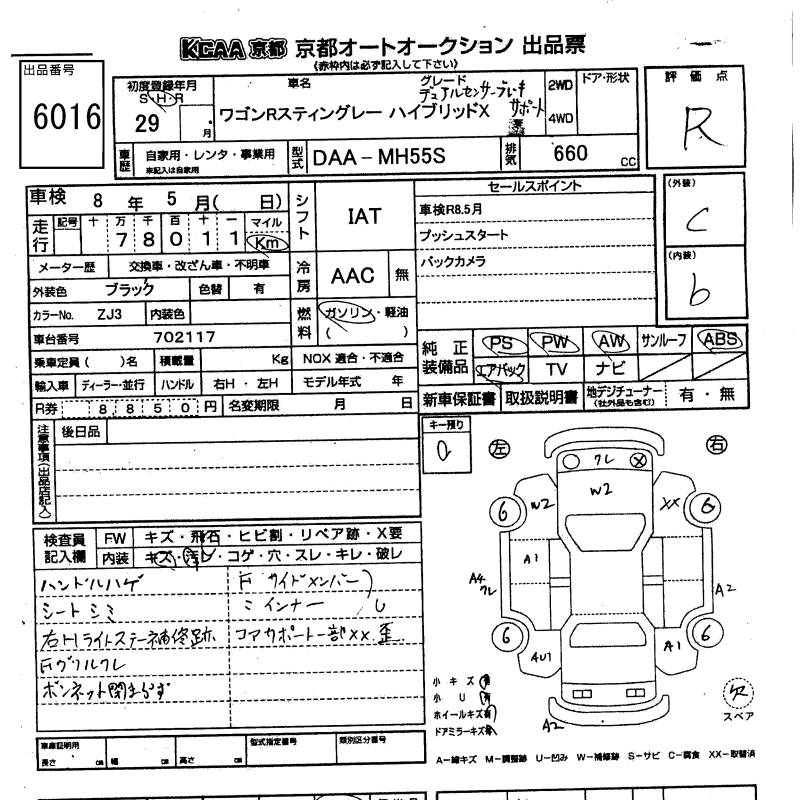 KCAA 京都 京都オートオークション 出品票
(赤枠内は必ず記入して下さい)
出品番号
6016
初度登録年月
S・H・R
29 月
車名
グレード
デュアルセンサーブレーキ
サポート
ワゴンRスティングレー ハイブリッドX
2WD
4WD
ドア・形状
評価点
R
車歴
自家用・レンタ・事業用
未記入は自家用
型式
DAA-MH55S
排気
660 CC
車検 8年 5月( 日)
走行
記号 十 万 千 百 十 一 マイル
7 8 0 1 1 Km
メーター歴 交換車・改ざん車・不明車
外装色 ブラック 色替 有
カラーNo. ZJ3 内装色
車台番号 702117
乗車定員( )名 積載量 Kg
輸入車 ディーラー・並行 ハンドル 右H・左H
R券 8 8 5 0 円 名変期限 月 日
シフト IAT
冷房 AAC 無
燃料 ガソリン・軽油
( )
NOX 適合・不適合
モデル年式 年
セールスポイント
車検R8.5月
プッシュスタート
バックカメラ
(外装)
C
(内装)
b
純正装備品
PS PW AW サンルーフ ABS
エアバック TV ナビ
新車保証書 取扱説明書 地デジチューナー(社外品も含む) 有・無
注意事項(出品店記入)
後日品
キー預り
左
右
検査員記入欄
FW キズ・飛石・ヒビ割・リペア跡・X要
内装 キズ・汚レ・コゲ・穴・スレ・キレ・破レ
ハンドルハゲ
シートシミ
右Hライトステー補修跡
Fグリルワレ
ボンネット閉まらず
F サイドメンバー
ミ インナー
コアサポート一部XX.歪
ワレ
W2
W2
XX
6
6
A1
A4
ワレ
A2
6
6
A1
A2
小キズ 有
小U 有
ホイールキズ有
ドアミラーキズ有
スペア
車庫証明用
長さ cm 幅 cm 高さ cm
型式指定番号
類別区分番号
A-線キズ M-調整跡 U-凹み W-補修跡 S-サビ C-腐食 XX-取替済